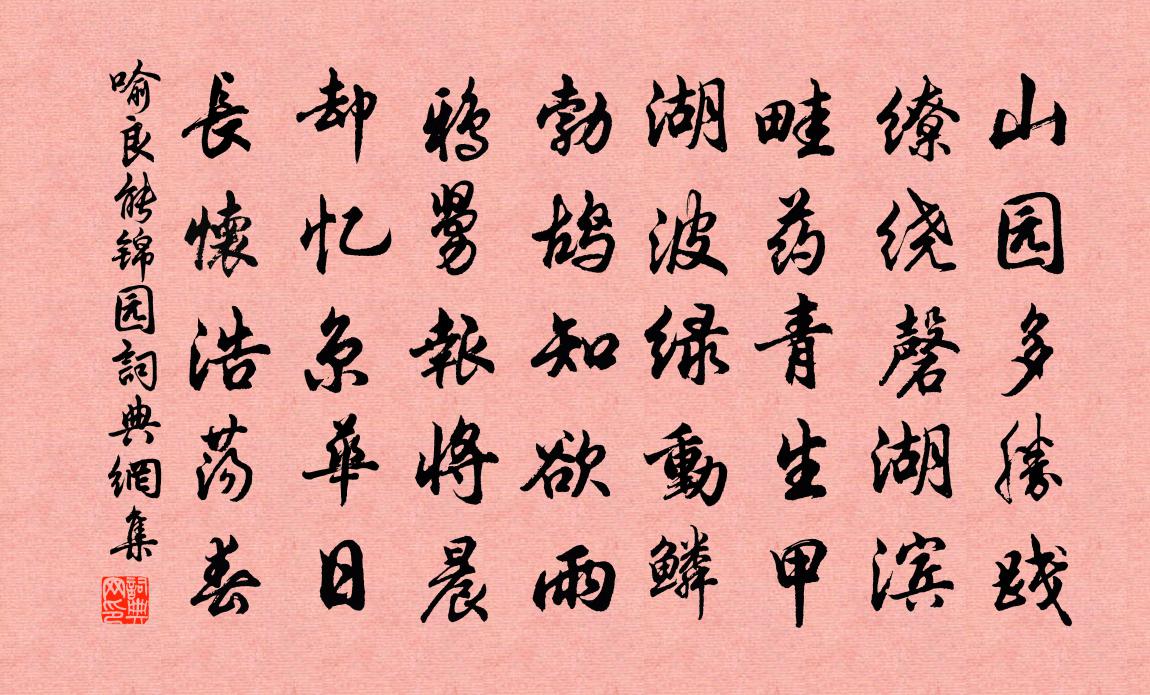 山园多勝践
缭绕磬湖滨
畦药青生甲
湖波绿動鳞
勃鸪知欲雨
鸦舅報将晨
却忆京華日
長懷浩荡春
喻良能锦园詞典網集
詞典网印